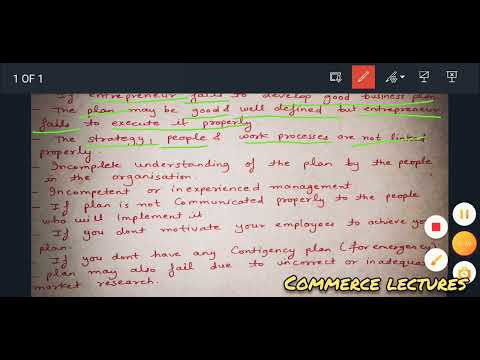 1 OF 1
- If entrepreneur fails to develop good business plan
- The plan may be good & well defined but entrepreneur
fails to execute it properly
- The strategy, people & work processes are not linked
properly
- Incomplete understanding of the plan by the people
in the organisation.
- Incompetent or inexperienced management
- If plan is not communicated properly to the people
who will implement it
- If you dont motivate your employees to achieve
plan.
- If you dont have any Contigency plan (for emergency)
plan may also fail due to uncorrect or
market research.
COMMERCE LECTURES